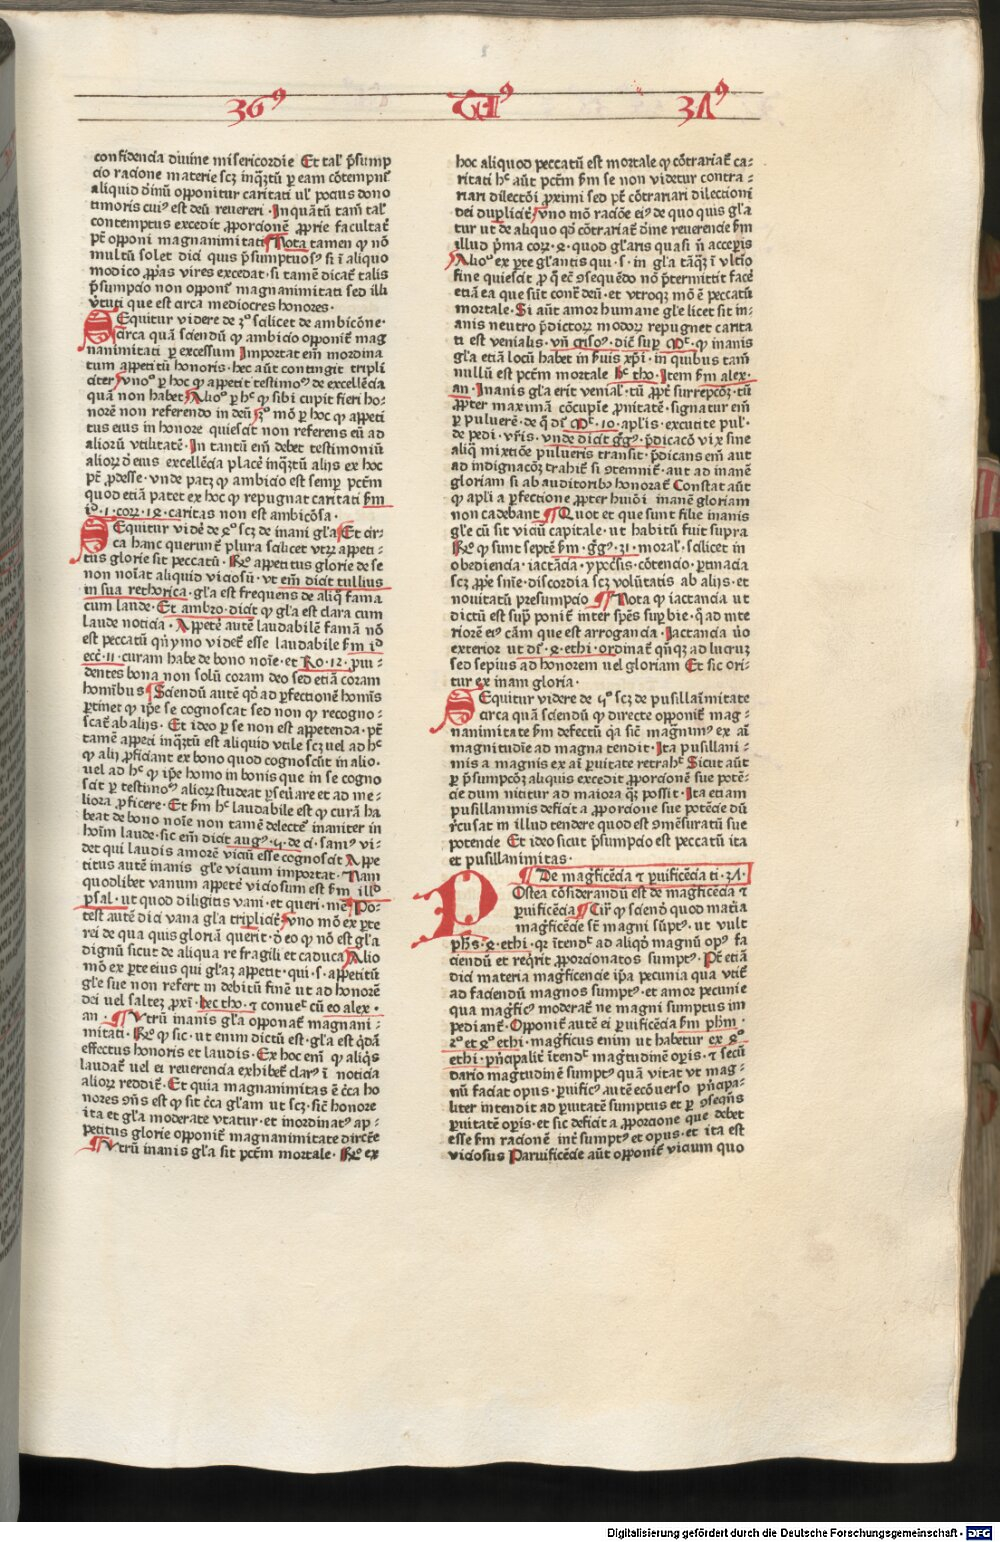 36⁹ Tⁱ⁹ 37⁹
confidencia diuine misericordie Et tal' p̄sump
cio racione materie scz inq̄ztū ꝑ eam cōtempnit̄
aliquid dīnū opponitur caritati ul' pocius dono
timoris cui⁹ est deū reuereri · Inquātū tam̄ tal'
contemptus excedit ꝓporcionē ꝓprie facultat̄
pt̄ opponi magnanimitati ¶ Nota tamen ꝙ nō
multū solet dici quis p̄sumptuos⁹ si ī aliquo
modico ꝓprias vires excedat · si tamē dicat̄ talis
p̄sumpcio non opponit̄ magnanimitati sed illi
v̄tuti que est circa mediocres honores ·
SEquitur videre de 3º scilicet de ambicōne ·
circa quā sciendū ꝙ ambicio opponit̄ mag
nanimitati ꝑ excessum Importat em̄ inordina
tum appetitū honoris · hec aūt contingit tripli
citer vno⁹ ꝑ hoc ꝙ appetit testimo⁹ de excellēcia
quā non habet Alio⁹ ꝑ h⁹ ꝙ sibi cupit fieri ho-
norē non referendo in deū 3º mō ꝑ hoc ꝙ appeti
tus eius in honore quiescit non referens eū ad
aliorū vtilitatē · In tantū em̄ debet testimoniū
alioꝝ d̄ eius excellēcia placē inq̄ztū alijs ex hoc
pt̄ ꝓdesse · vnde patz ꝙ ambicio est semꝑ pctēm
quod etiā patet ex hoc ꝙ repugnat caritati ẜm
id · 1 · corꝝ · 18 · caritas non est ambicōsa ·
SEquitur vidē de 8º scz de inani gl'a Et cir-
ca hanc querunt̄ plura scilicet vtꝝ appeti-
tus glorie sit peccatū · Rº appetitus glorie de se
non noīat aliquid viciosū · vt em̄ dicit tullius
in sua rethorica · gl'a est frequens de aliq̄ fama
cum laude · Et ambro · dicit ꝙ gl'a est clara cum
laude noticia · Appetē autē laudabilē famā nō
est peccatū qn̄ymo videt̄ esse laudabile ẜm id
ecc̄ · 11 · curam habe de bono noīe · et Ro · 12 · pui-
dentes bona non solū coram deo sed etiā coram
homībus ¶ Sciendū autē qd̄ ad ꝑfectionē homīs
ꝑtinet ꝙ ip̄e se cognoscat sed non ꝙ recogno-
scat̄ ab alijs · Et ideo ꝑ se non est appetenda · pt̄
tamē appeti inq̄ztū est aliquid vtile scz uel ad h⁹
ꝙ alij ꝓficiant ex bono quod cognoscūt in alio ·
uel ad h⁹ ꝙ ip̄e homo in bonis que in se cogno
scit ꝑ testimo⁹ alioꝝ studeat ꝑseūare et ad me-
liora ꝓficere · Et ẜm h⁹ laudabile est ꝙ curā ha
beat de bono noīe non tamē delectet̄ inaniter in
hoīm laude · sic em̄ dicit aug⁹ · 5 · de ci · sani⁹ vi-
det qui laudis amorē viciū esse cognoscit Appe
titus autē inanis gl'e vicium importat · Nam
quodlibet vanum appetē viciosum est ẜm illº
psal · ut quod diligitis vani · et queri · mē Po-
test autē dici vana gl'a triplicit̄ vno mō ex ꝑte
rei de qua quis gloriā querit · d̄ eo ꝙ nō est gl'a
dignū sicut de aliqua re fragili et caduca Alio
mō ex ꝑte eius qui gl'az appetit · qui · s · appetitū
gl'e sue non refert in debitū finē ut ad honorē
dei vel saltez ꝓxī · hec tho · ⁊ conue⁹ cū eo alex ·
an · ¶ Vtrū inanis gl'a opponat̄ magnani-
mitati · Rº ꝙ sic · ut enim dictū est · gl'a est q̄dā
effectus honoris et laudis · Ex hoc em̄ ꝙ aliq̄s
laudat̄ uel ei reuerencia exhibet̄ clar⁹ ī noticia
alioꝝ reddit̄ · Et quia magnanimitas ē c̄ca ho
nores 9n̄s est ꝙ sit c̄ca gl'am ut scz · sic̄ honore
ita et gl'a moderate vtatur · et inordinat⁹ ap-
petitus glorie opponit̄ magnanimitate dirc̄te
¶ Vtrū inanis gl'a sit pctēm mortale · Rº ex
hoc aliquod peccatū est mortale ꝙ cōtrariat̄ ca-
ritati h⁹ aūt pctēm ẜm se non videtur contra-
riari dilectōi ꝓximi sed pt̄ cōtrariari dilectioni
dei duplicit̄ vno mō raciōe ei⁹ de quo quis gl'a
tur ut de aliquo qd̄ cōtrariat̄ dīne reuerencie ẜm
illud p̄ma corꝝ · 8 · quod gl'aris quasi n̄ acceꝑis
Alio⁹ ex ꝑte gl'antis qui · s · in gl'a tāq̄z ī vltīo
fine quiescit ꝓ q̄ ec̄ 9sequēdo nō p̄termittit facē
etiā ea que sūt cont̄ deū · et vtroqz mō ē peccatū
mortale · Si aūt amor humane gl'e licet sit in-
anis neutro p̄dictoꝝ modoꝝ repugnet carita
ti est venialis · vn̄ criso⁹ · dic̄ suꝑ mt̄ · ꝙ inanis
gl'a etiā locū habet in ẜuis xp̄i · in quibus tam̄
nullū est pctēm mortale hec tho · Item ẜm alex ·
an · Inanis gl'a erit venial' · tū ꝓpt̄ surrepcōz · tū
ꝓpter maximā cōcupīe ꝓnitatē · signatur em̄
ꝑ puluerē · de q̄ dr̄ mt̄ · 10 · apl'is · excutite pul' ·
de pedi · vr̄is · vnde dicit g̃g⁹ · p̄dicacō vix sine
aliq̄ mixtiōe pulueris transit · p̄dicans em̄ aut
ad indignacōz trahit̄ si 9temnit̄ · aut ad inanē
gloriam si ab auditorib⁹ honorat̄ Constat aūt
ꝙ apl'i a ꝑfectione ꝓpter huiōi inanē gloriam
non cadebant ¶ Quot et que sunt filie inanis
gl'e cū sit viciū capitale · ut habitū fuit supra
Rº ꝙ sunt septē ẜm · g̃g⁹ · 31 · moral' · scilicet in
obediencia · iactācia · ypoc̄sis · cōtencio · ꝑtinacia
scz ꝓp̄e sn̄ie · discordia scz volūtatis ab alijs · et
nouitatū presumpcio ¶ Nota ꝙ iactancia ut
dictū est sup̄ ponit̄ inter sp̄es suꝑbie · q̄ ad inte
riorē ei⁹ cām que est arrogancia · Iactancia v̄o
exterior ut dr̄ · 8 · ethi · ordinat̄ qn̄qz ad lucruz
sed sepius ad honorem uel gloriam Et sic ori-
tur ex inam gloria ·
SEquitur videre de 5º scz de pusillaīmitate
circa quā sciendū ꝙ directe opponit̄ mag-
nanimitate ẜm defectū q̄a sic̄ mag̃nim⁹ ex aī
magnitudīe ad magna tendit · Ita pusillani-
mis a magnis ex aī ꝑuitate retrahit̄ Sicut aūt
ꝑ p̄sumpcōz aliquis excedit ꝓporcionē sue potē-
cie dum nititur ad maiora q̄z possit · Ita etiam
pusillanimis deficit a ꝓporcione sue potēcie dū
r̄cusat in illud tendere quod est 9mēsuratū sue
potencie Et ideo sicut p̄sumpcio est peccatū ita
et pusillanimitas ·
¶ De mag̃ficēcia ⁊ ꝑuificēcia ti · 37 ·
POstea cōsiderandū est de mag̃ficēcia ⁊
ꝑuificēcia ¶ Cirᵃ ꝙ sciend̄ quod mat̄ia
mag̃ficēcie st̄ magni sūpt⁹ · ut vult
ph̄s · 8 · ethi · qz ītend̄t ad aliqd̄ magnū op⁹ fa
ciendū et req̄rit ꝓporcionatos sumpt⁹ · Pt̄ etiā
dici materia mag̃ficencie ip̄a pecunia qua vtit̄
ad faciendū magnos sumpt⁹ · et amor pecunie
qua mag̃fic⁹ moderat̄ ne magni sumptus im
pediant̄ · Opponit̄ autē ei ꝑuificēcia ẜm ph̄m ·
2º et 8º ethi · mag̃ficus enim ut habetur ex 8º
ethi · p̄ncipalit̄ ītend̄t mag̃tudinē oꝑis · ⁊ secū
dario mag̃tudinē sumpt⁹ quā vitat vt mag-
nū faciat opus · ꝑuific⁹ autē ecōuerso p̄ncipa-
liter intendit ad ꝑuitatē sumptus et ꝑ 9seq̄n̄s
ꝑuitatē oꝑis · et sic deficit a ꝓporcione que debet
esse ẜm racionē int̄ sumpt⁹ et opus · et ita est
viciosus Paruificēcie aūt opponit̄ vicium quo
Digitalisierung gefördert durch die Deutsche Forschungsgemeinschaft - DFG